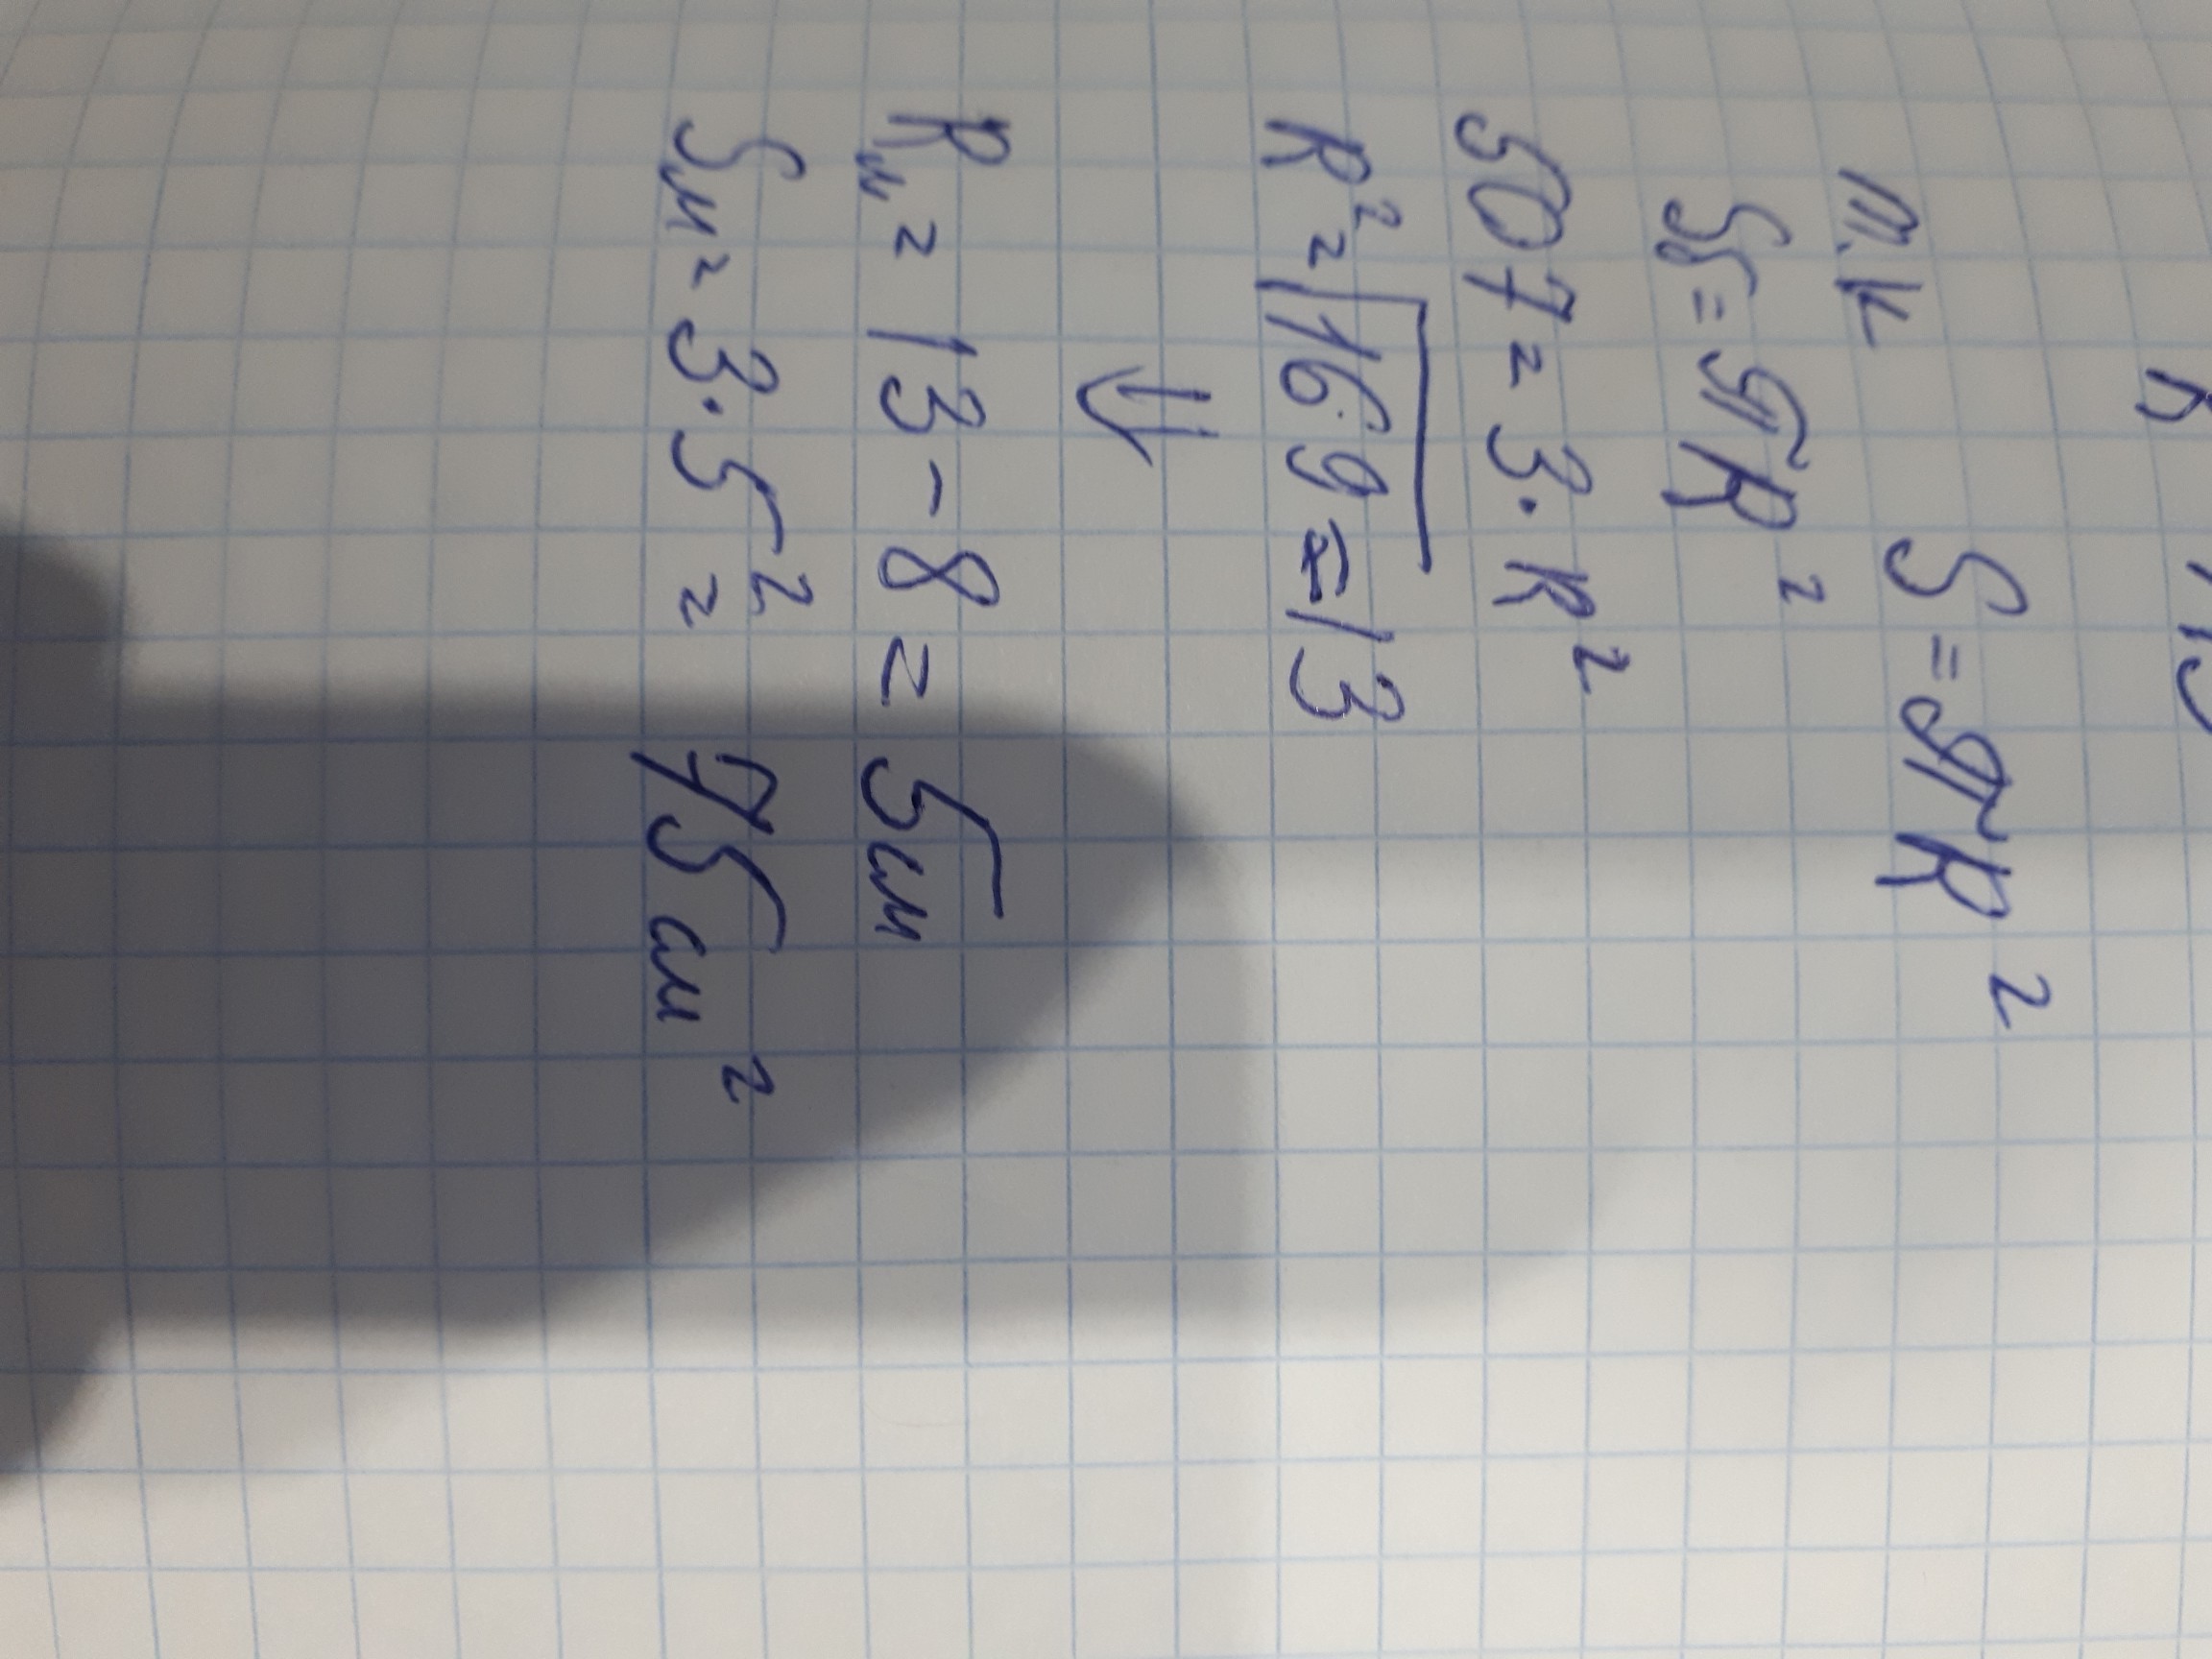 т.к S = πR²
Sб = πR²
507 = 3 · R²
R² = √169 = 13
⇓
Rм = 13 - 8 = 5см
Sм = 3 · 5² = 75 см²